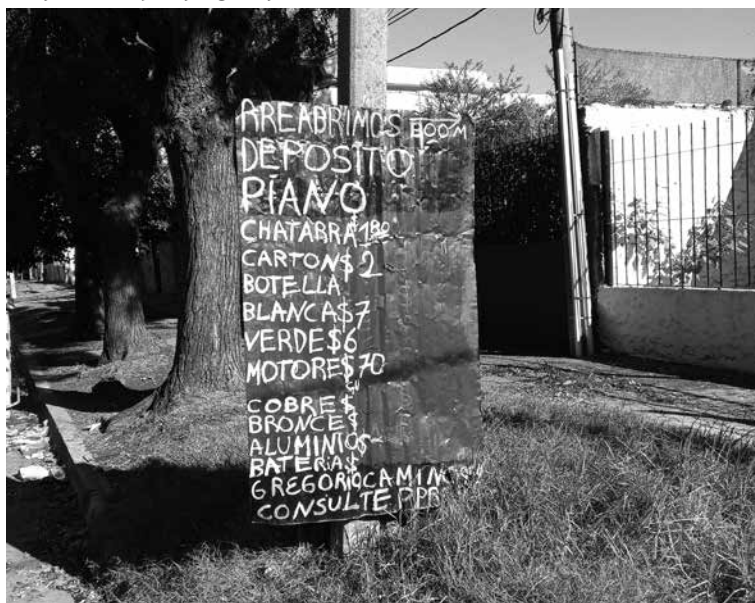 AREABRIMOS BOOM
DEPOSITO
PIANO
CHATARRA $ 1 80
CARTON $ 2
BOTELLA
BLANCA $ 7
VERDE $ 6
MOTORE $ 70
COBRE $
BRONCE $
ALUMINIO $
BATERIA $
GREGORIO CAMINO
CONSULTE